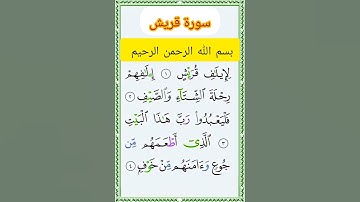 سورة قريش
بسم الله الرحمن الرحيم
لِإِيلَٰفِ قُرَيْشٍ ١ إِۦلَٰفِهِمْ
رِحْلَةَ ٱلشِّتَآءِ وَٱلصَّيْفِ ٢
فَلْيَعْبُدُوا۟ رَبَّ هَٰذَا ٱلْبَيْتِ
٣ ٱلَّذِىٓ أَطْعَمَهُم مِّن
جُوعٍ وَءَامَنَهُم مِّنْ خَوْفٍۭ ٤